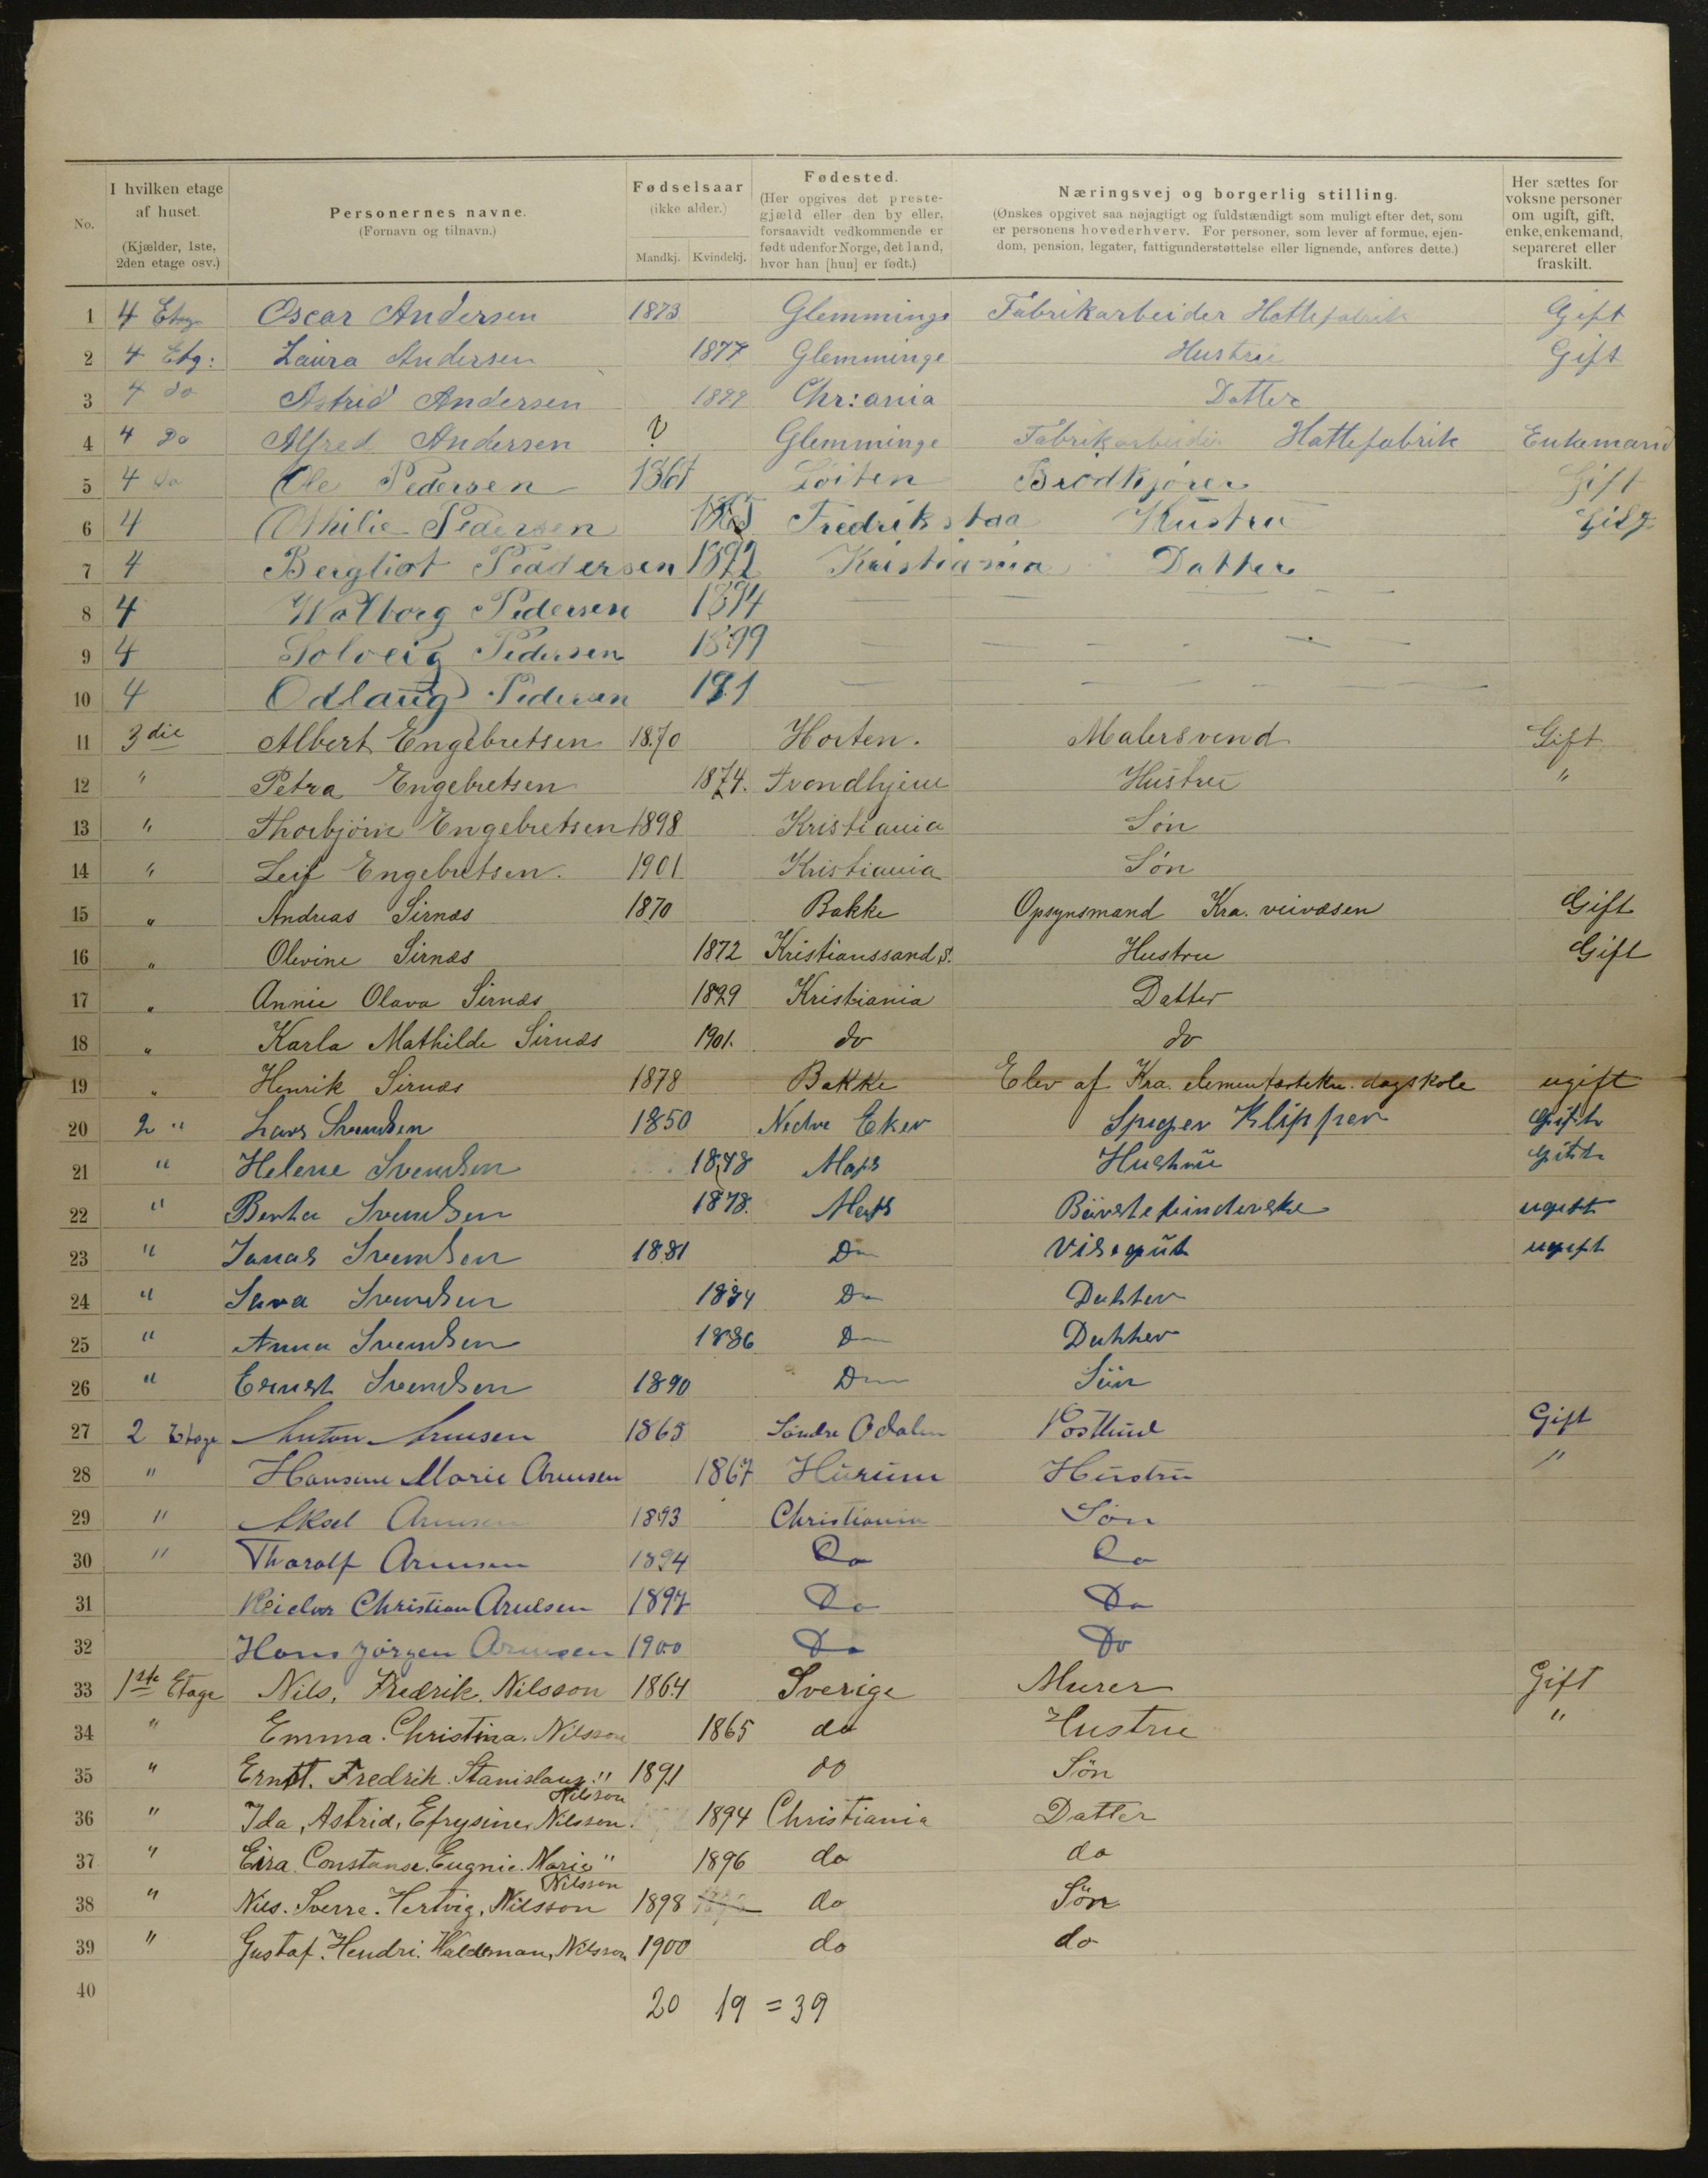 No.
I hvilken etage
af huset.
(Kjælder, 1ste,
2den etage osv.)
Personernes navne.
(Fornavn og tilnavn.)
Fødselsaar
(ikke alder.)
Mandkj. Kvindekj.
Fødested.
(Her opgives det preste-
gjæld eller den by eller,
forsaavidt vedkommende er
født udenfor Norge, det land,
hvor han [hun] er født.)
Næringsvej og borgerlig stilling.
(Ønskes opgivet saa nøjagtigt og fuldstændigt som muligt efter det, som
er personens hovederhverv. For personer, som lever af formue, ejen-
dom, pension, legater, fattigunderstøttelse eller lignende, anføres dette.)
Her sættes for
voksne personer
om ugift, gift,
enke, enkemand,
separeret eller
fraskilt.
1 4 Etg Oscar Andersen 1873 Glemminge Fabrikarbeider Hattefabrik Gift
2 4 Etg: Laura Andersen 1877 Glemminge Hustru Gift
3 4 do Astrid Andersen 1899 Chr:ania Datter
4 4 Do Alfred Andersen ? Glemminge Fabrikarbeider Hattefabrik Enkemand
5 4 do Ole Pedersen 1867 Löiten Brødkjører Gift
6 4 Othilie Pedersen 1865 Fredrikstaa Hustru Gift
7 4 Bergliot Peadersen 1892 Kristiania Datter
8 4 Walborg Pedersen 1894 — —
9 4 Solveig Pedersen 1899 — —
10 4 Odlaug Pedersen 191 — —
11 3die Albert Engebretsen 1870 Horten. Malersvend Gift
12 " Petra Engebretsen 1874. Trondhjem Hustru "
13 " Thorbjørn Engebretsen 1898 Kristiania Søn
14 " Leif Engebretsen. 1901 Kristiania Søn
15 " Andreas Sirnæs 1870 Bakke Opsynsmand Kra. veivæsen Gift
16 " Olevine Sirnæs 1872 Kristianssand S. Hustru Gift
17 " Annie Olava Sirnæs 1899 Kristiania Datter
18 " Karla Mathilde Sirnæs 1901. do do
19 " Henrik Sirnæs 1878 Bakke Elev af Kra. elementærtekn. dagskole ugift
20 2 " Lars Svendsen 1850 Nedre Eker Spiger Klipper Gift
21 " Helene Svendsen 1848 Moss Hustru gift
22 " Berta Svendsen 1878. Moss Börstebinderske ugift
23 " Jonas Svendsen 1881 Do Visegut ugift
24 " Svendsen 1884 Do Datter
25 " Anna Svendsen 1886 Do Datter
26 " Ernst Svendsen 1890 Do Sün
27 2 Etage Anton Arnesen 1865 Söndre Odalen Postbud Gift
28 " Hansine Marie Arnesen 1867 Hurum Hustru "
29 " Aksel Arnesen 1893 Christiania Søn
30 " Tharalf Arnesen 1894 Do Do
31 Reidar Christian Arnesen 1897 Do Do
32 Hans Jørgen Arnesen 1900 Do Do
33 1ste Etage Nils, Fredrik. Nilsson 1864 Sverige Murer Gift
34 " Emma. Christina. Nilsson 1865 do Hustru "
35 " Ernst. Fredrik. Stanislaus " Nilsson 1891 do Sön
36 " Ida, Astrid, Efrysine, Nilsson. 1894 Christiania Datter
37 " Eira. Constanse. Eugnie. Marie " Nilsson 1896 do do
38 " Nils. Sverre. Hertvig, Nilsson 1898 do Sön
39 " Gustaf. Hendri. Waldeman, Nilsson 1900 do do
40
20 19 = 39